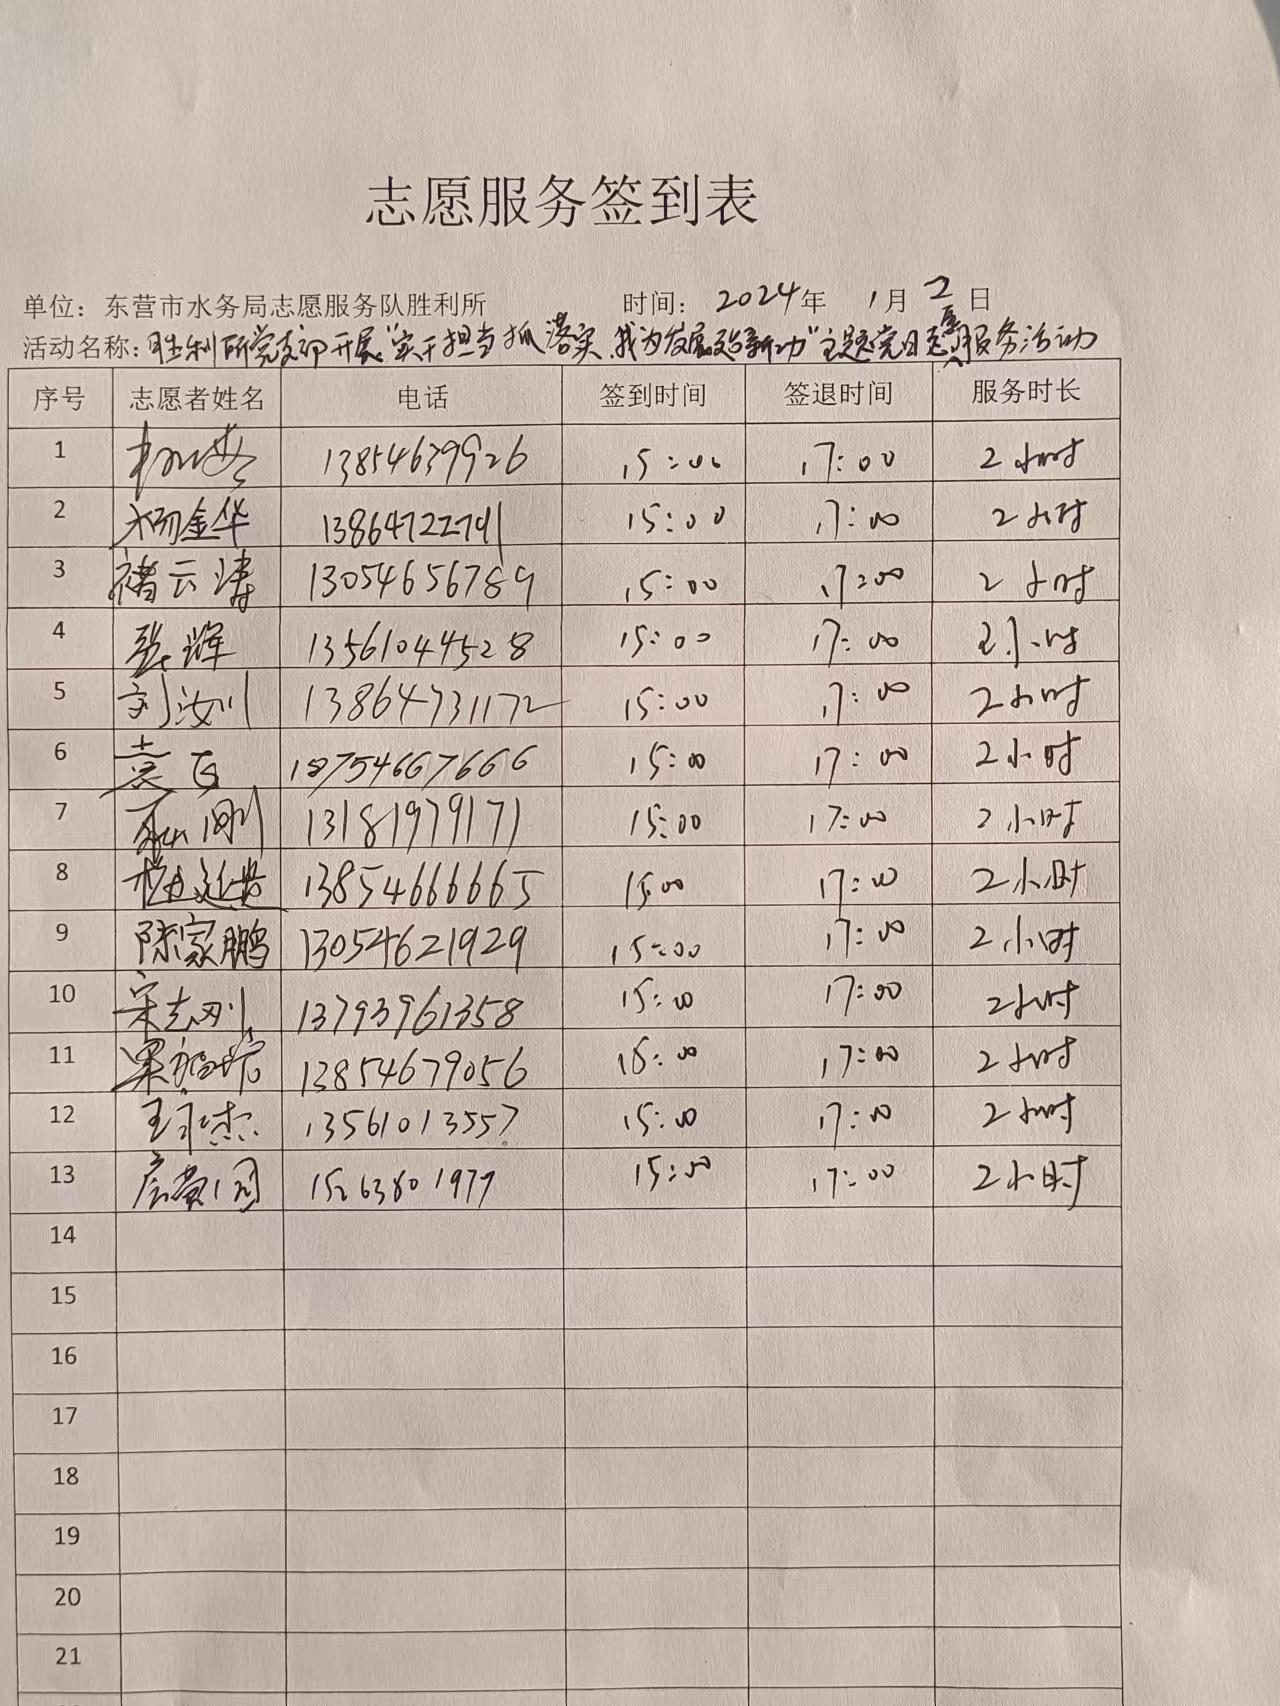 志愿服务签到表
单位：东营市水务局志愿服务队胜利所 时间：2024年 1月 2日
活动名称：胜利所党支部开展"实干担当抓落实 我为发展建新功"主题党日志愿服务活动
序号 志愿者姓名 电话 签到时间 签退时间 服务时长
1 13854639926 15:00 17:00 2小时
2 杨金华 13864722741 15:00 17:00 2小时
3 褚云涛 13054656789 15:00 17:00 2小时
4 张辉 13561044528 15:00 17:00 2小时
5 刘汝川 13864731172 15:00 17:00 2小时
6 54667666 15:00 17:00 2小时
7 13181979171 15:00 17:00 2小时
8 13854666665 15:00 17:00 2小时
9 陈家鹏 13054621929 15:00 17:00 2小时
10 宋志刚 13793961358 15:00 17:00 2小时
11 13854679056 15:00 17:00 2小时
12 王永杰 13561013557 15:00 17:00 2小时
13 15263801979 15:00 17:00 2小时
14
15
16
17
18
19
20
21